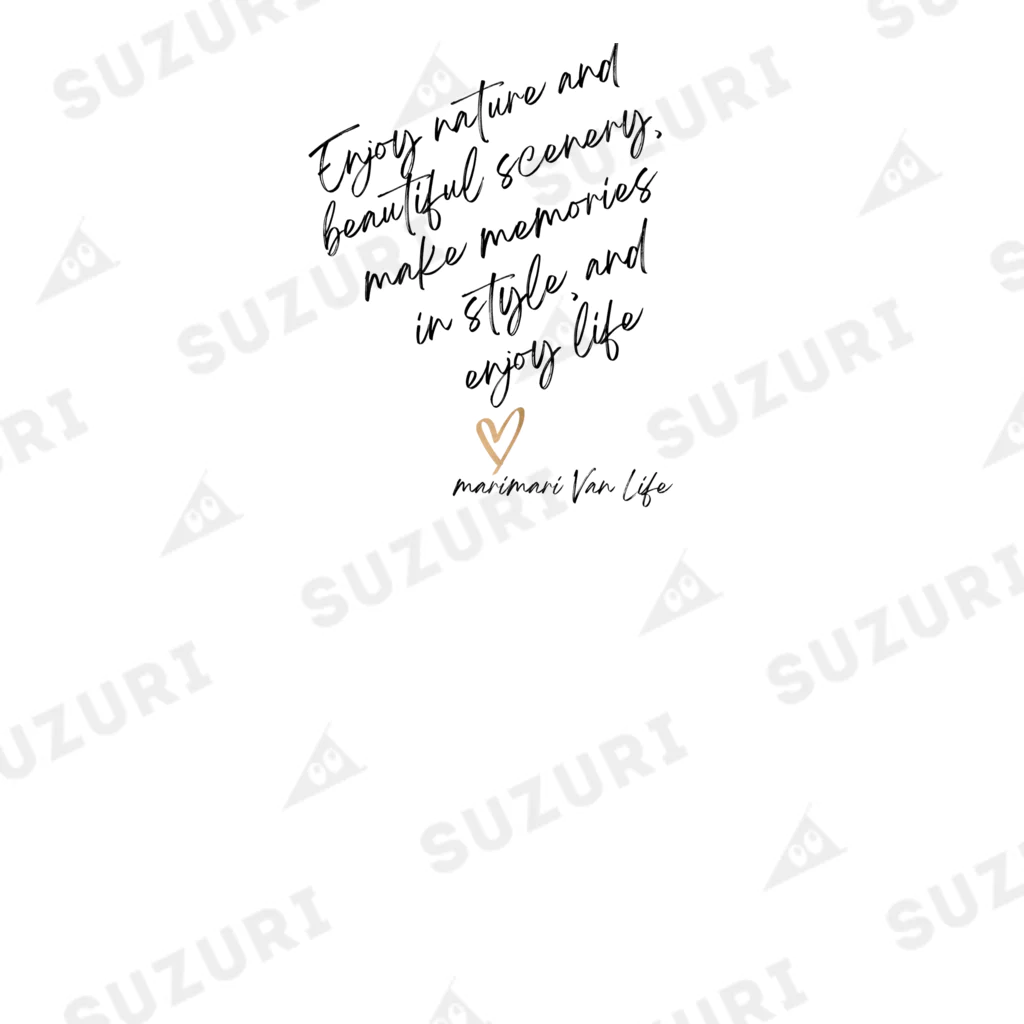 Enjoy nature and
beautiful scenery,
make memories
in style, and
enjoy life
marimari Van Life
SUZURI
SUZURI
SUZURI
SUZURI
SUZURI
SUZURI
SUZURI
SUZURI
SUZURI
SUZURI
SUZURI
SUZURI
SUZURI